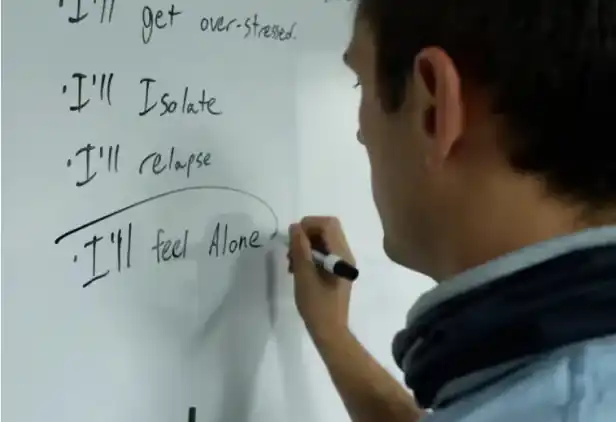 ·I'll get over-stressed.
·I'll Isolate
·I'll relapse
·I'll feel Alone